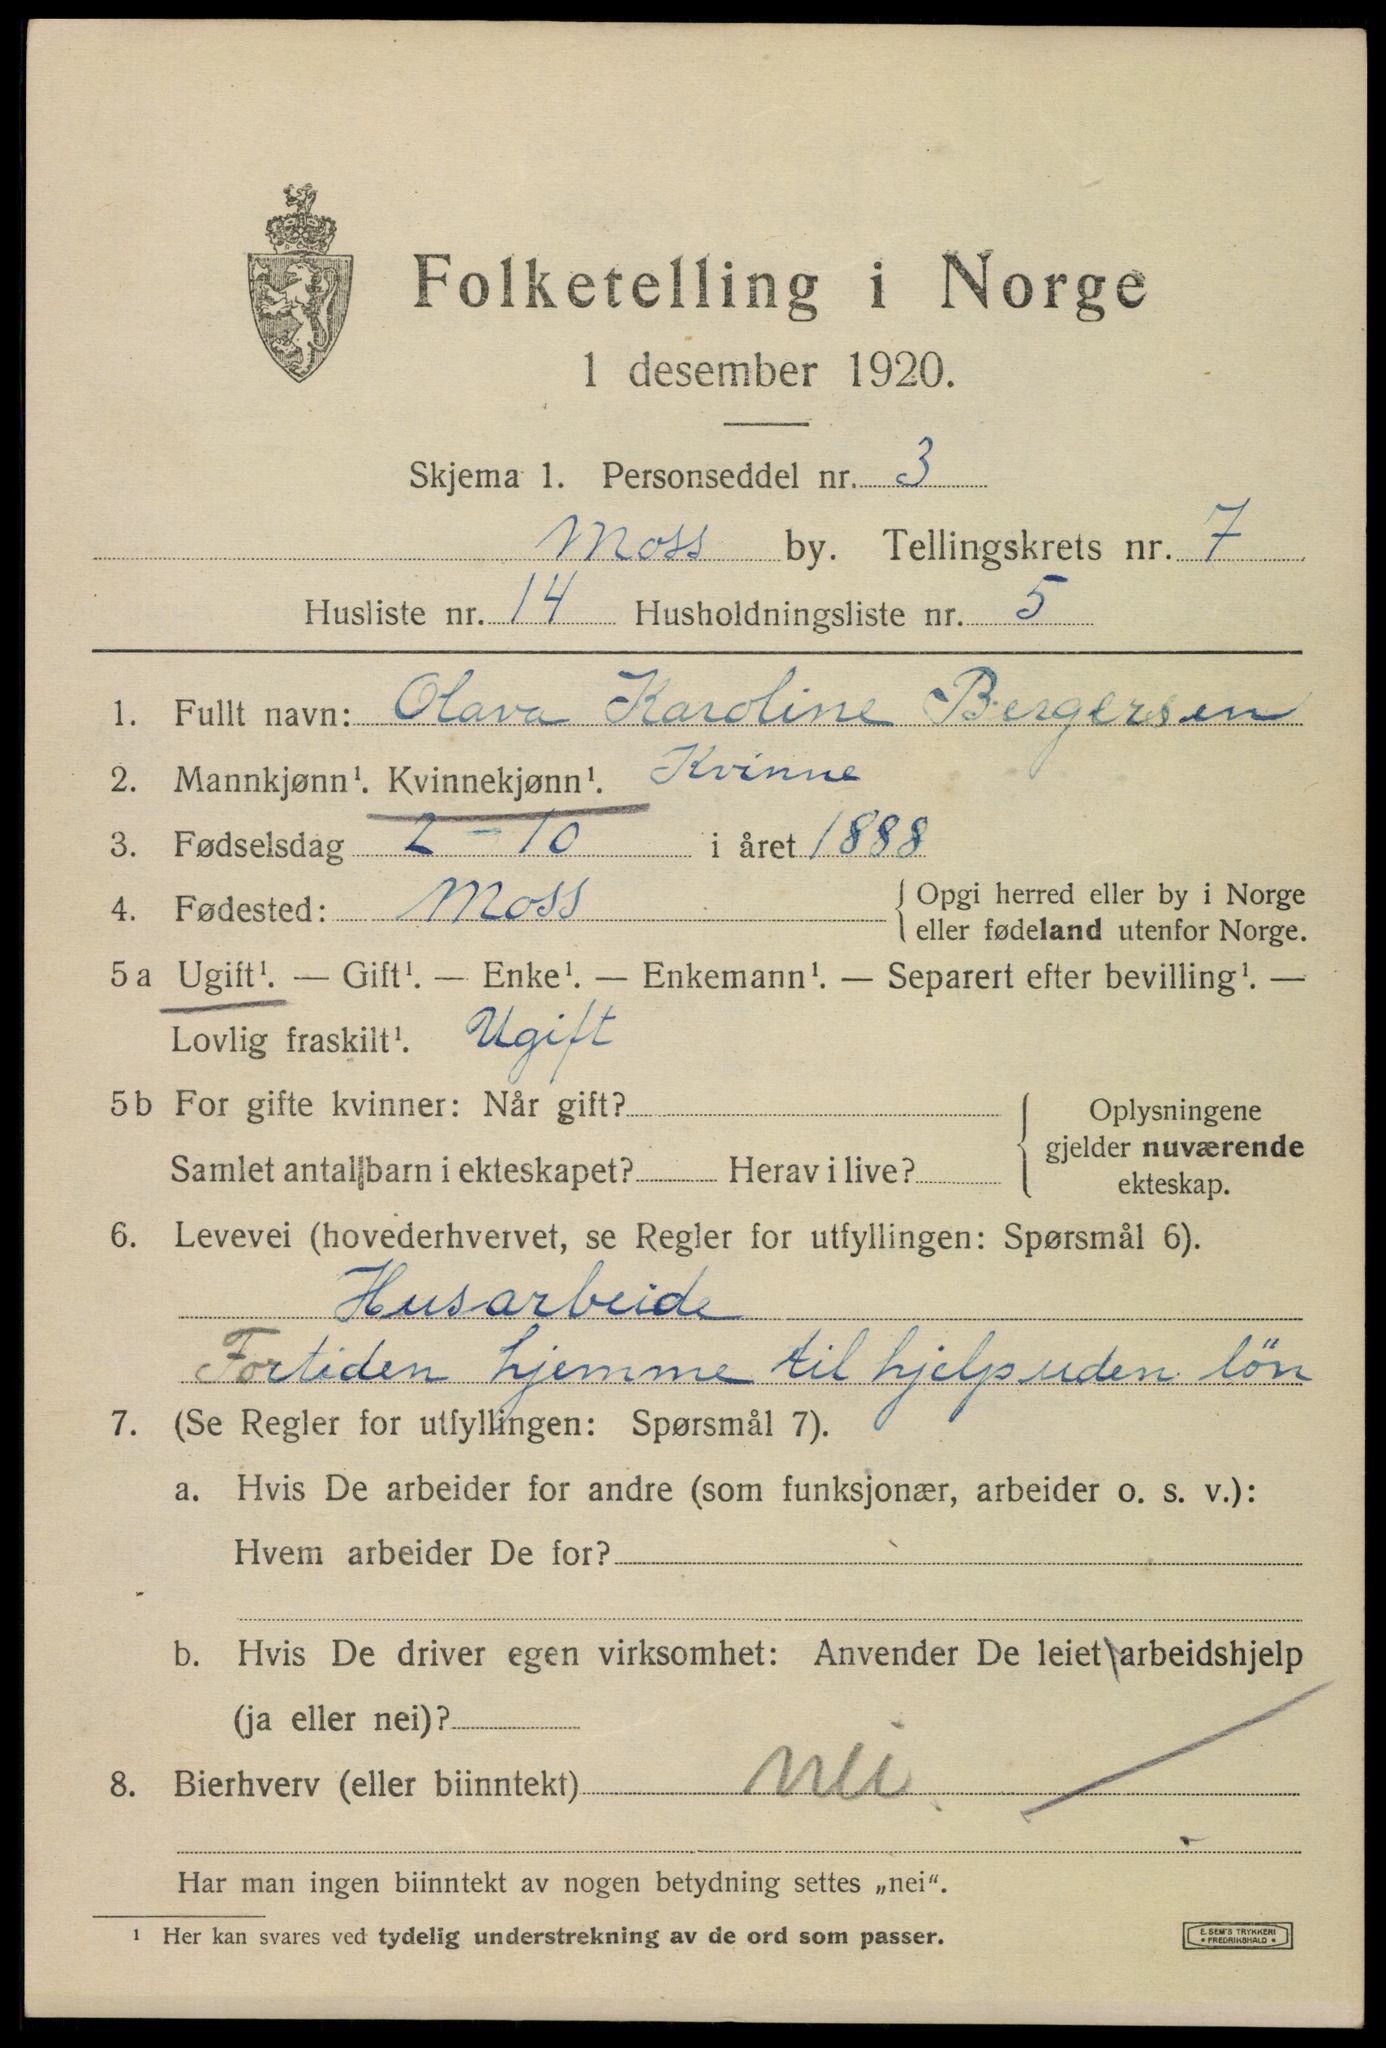 Folketelling i Norge
1 desember 1920.
Skjema 1. Personseddel nr. 3
Moss by. Tellingskrets nr. 7
Husliste nr. 14 Husholdningsliste nr. 5
1. Fullt navn: Olava Karoline Bergersen
2. Mannkjønn¹. Kvinnekjønn¹. Kvinne
3. Fødselsdag 2 - 10 i året 1888
4. Fødested: Moss
{ Opgi herred eller by i Norge
eller fødeland utenfor Norge.
5a Ugift¹. — Gift¹. — Enke¹. — Enkemann¹. — Separert efter bevilling¹. —
Lovlig fraskilt¹. Ugift
5b For gifte kvinner: Når gift?
Samlet antall barn i ekteskapet? Herav i live?
{ Oplysningene
gjelder nuværende
ekteskap.
6. Levevei (hovederhvervet, se Regler for utfyllingen: Spørsmål 6).
Husarbeide
Fortiden hjemme til hjelp uden lön
7. (Se Regler for utfyllingen: Spørsmål 7).
a. Hvis De arbeider for andre (som funksjonær, arbeider o. s. v.):
Hvem arbeider De for?
b. Hvis De driver egen virksomhet: Anvender De leiet arbeidshjelp
(ja eller nei)?
8. Bierhverv (eller biinntekt) nei
Har man ingen biinntekt av nogen betydning settes „nei".
¹ Her kan svares ved tydelig understrekning av de ord som passer.
E. SEM'S TRYKKERI
• FREDRIKSHALD •